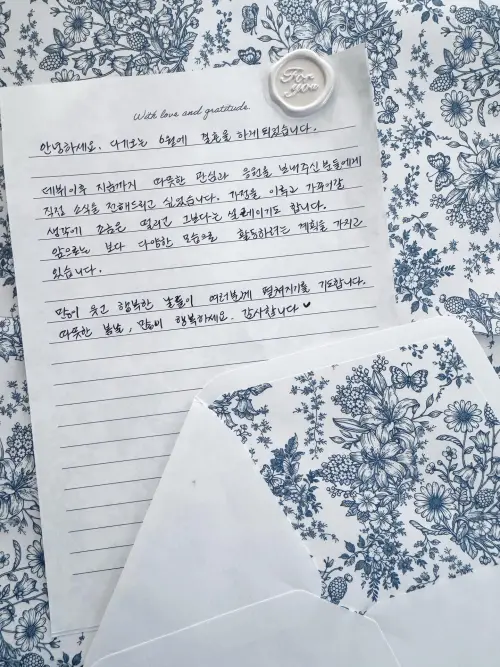 For
You
With love and gratitude.
안녕하세요. 다가오는 6월에 결혼을 하게 되었습니다.
데뷔 이후 지금까지 따뜻한 관심과 응원을 보내주신 분들에게
직접 소식을 전해드리고 싶었습니다. 가정을 이루고 가꾸어갈
생각에 조금은 떨리고 그보다는 설레이기도 합니다.
앞으로는 보다 다양한 모습으로 활동하려는 계획을 가지고
있습니다.
많이 웃고 행복한 날들이 여러분께 펼쳐지기를 기도합니다.
따뜻한 봄날, 많이 행복하세요. 감사합니다 ♥